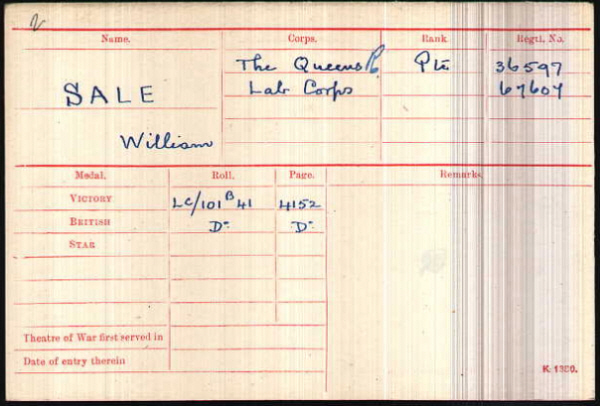 Name. Corps. Rank Regtl. No.
SALE The Queens R. Pte 36597
William Lab Corps 67607
Medal. Roll. Page. Remarks.
VICTORY LC/101 B 41 4152
BRITISH Do. Do.
STAR
Theatre of War first served in
Date of entry therein
K. 1380.